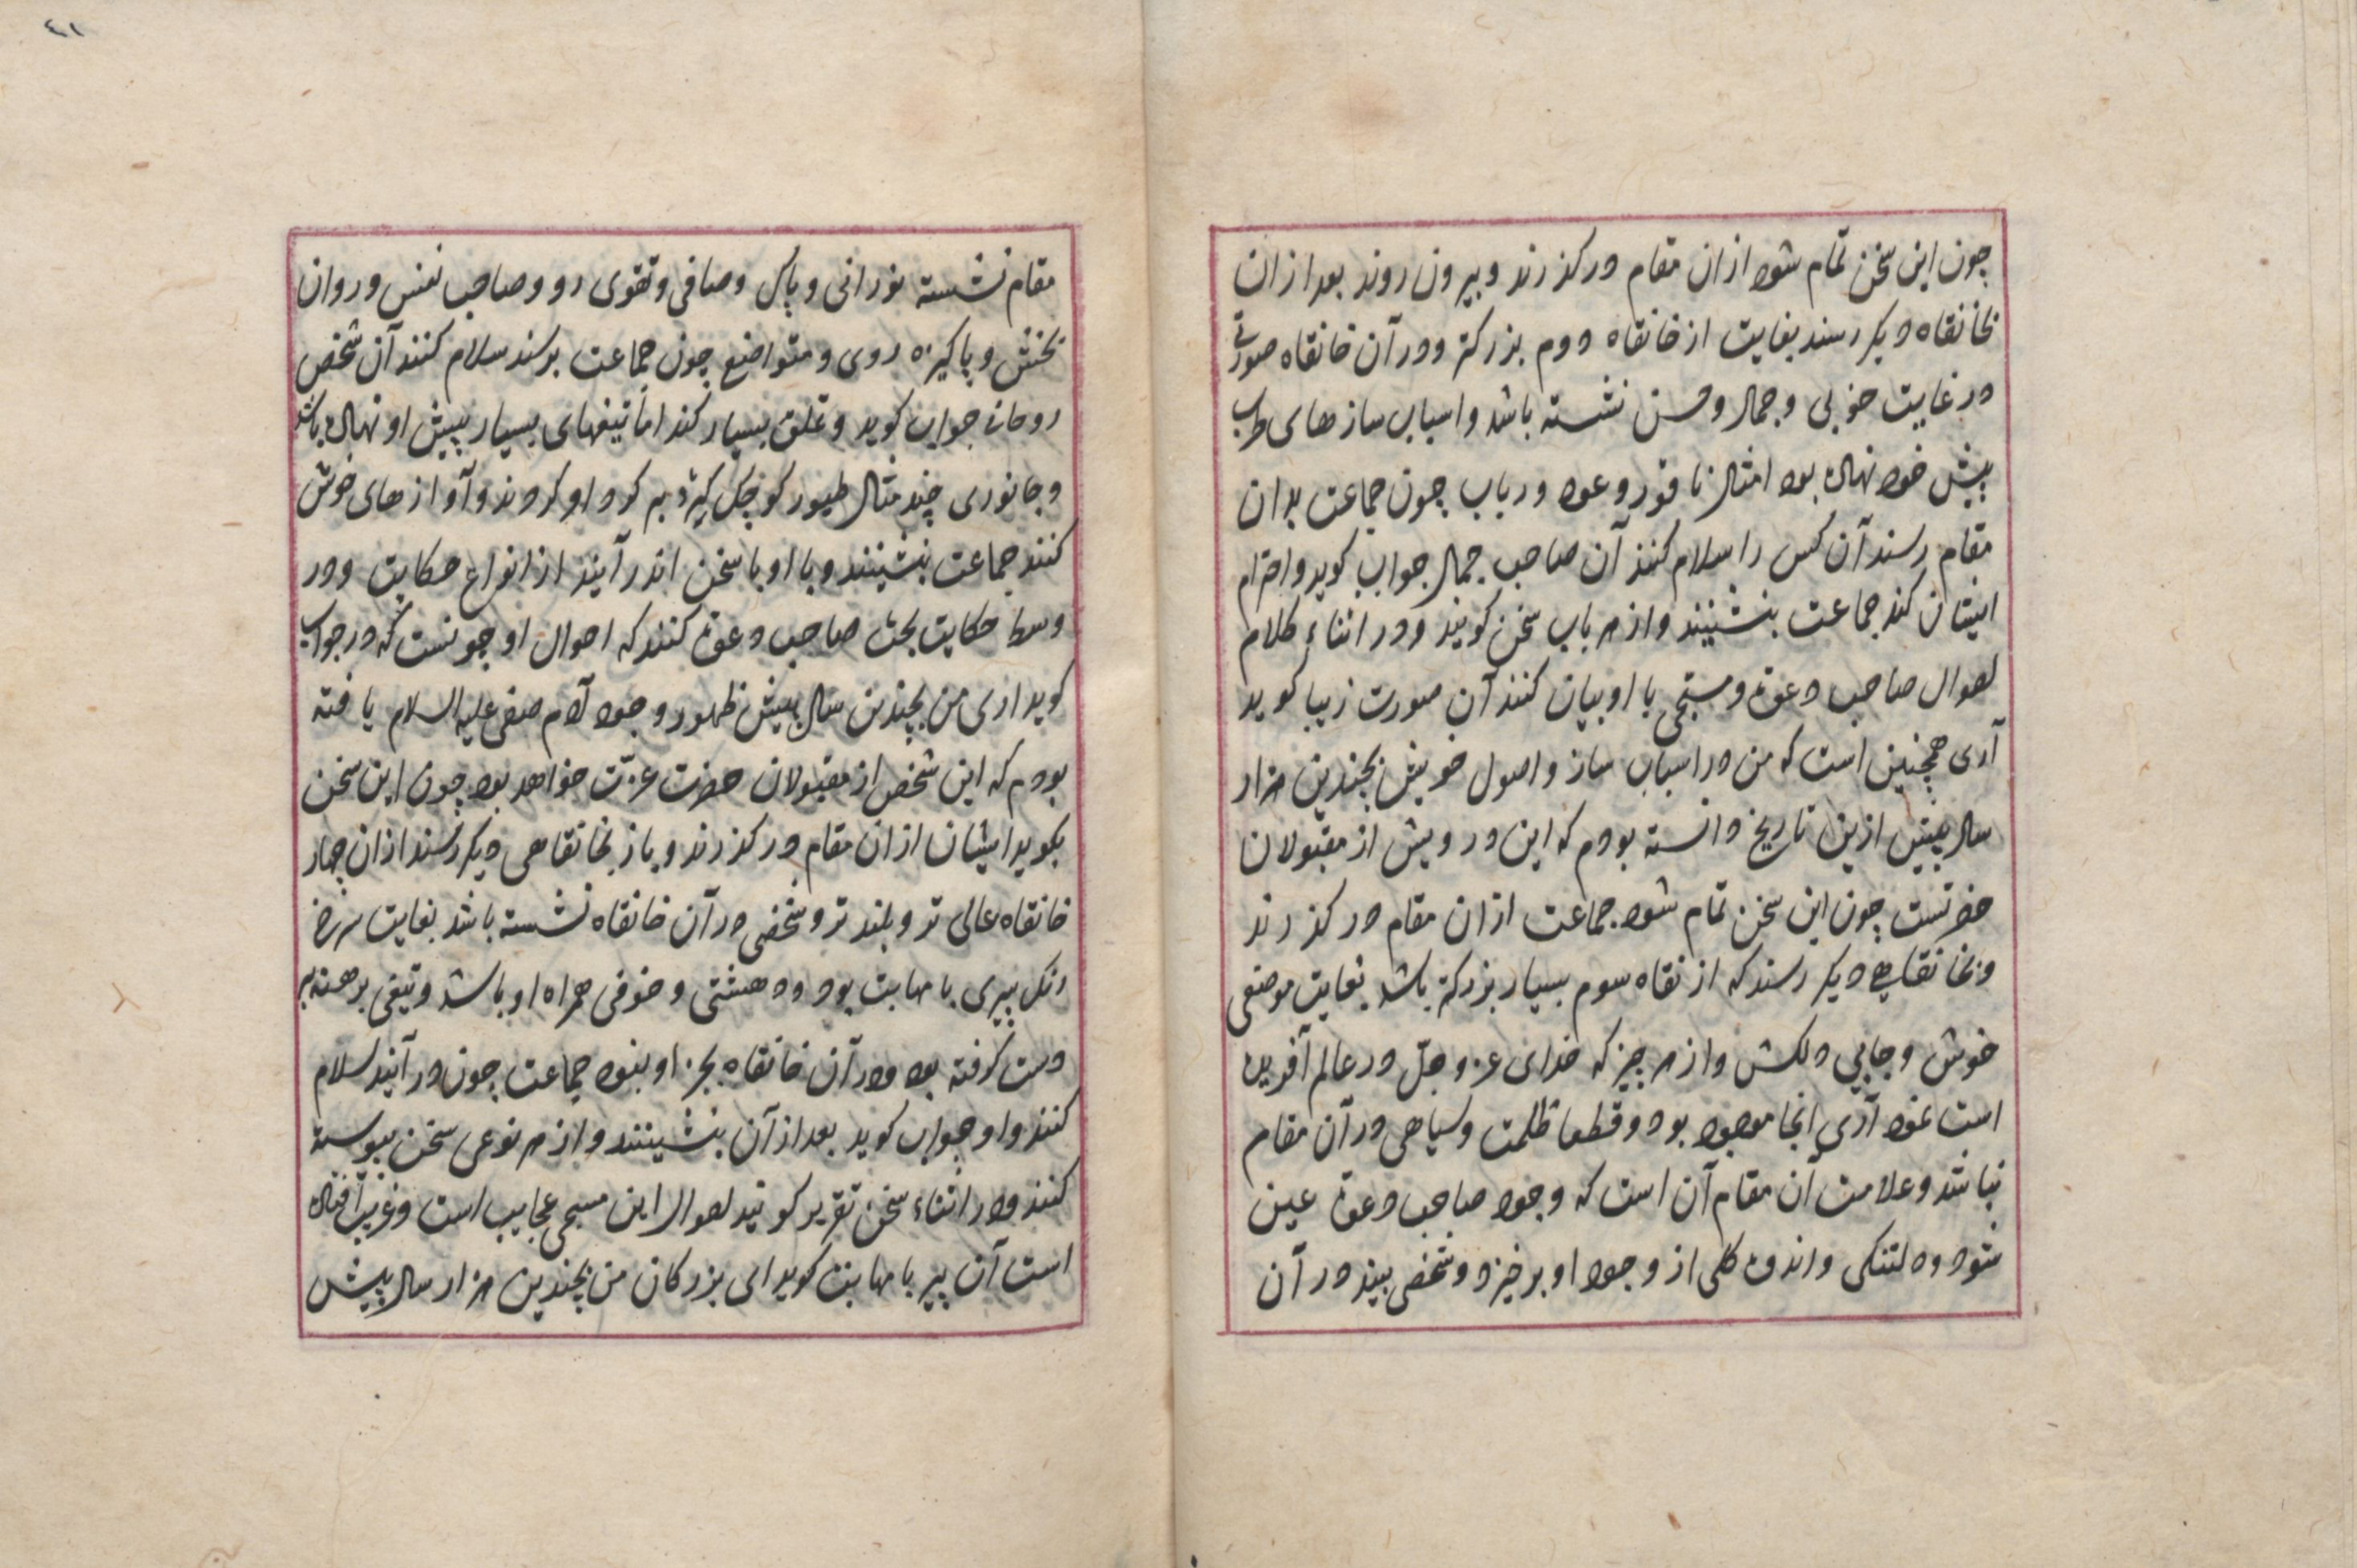 چون این سخن تمام شود از ان مقام درکذرند و بیرون روند بعد از ان
بخانقاه دیکر رسند بغایت از خانقاه دوم بزرکتر و در آن خانقاه صورتی
در غایت خوبی و جمال و حسن نشسته باشد و اسباب سازهای طرب
پیش خود نهاده بود امثال ناقور و عود و رباب چون جماعت بدان
مقام رسند آن کس را سلام کنند آن صاحب جمال جواب کوید و احترام
ایشان کند جماعت بنشینند و از هر باب سخن کویند و در اثناء کلام
احوال صاحب دعوة و مسبحی با او بیان کنند آن صورت زیبا کوید
آری همچنین است که من در اسباب ساز و اصول خویش بچندین هزار
سال پیش ازین تاریخ دانسته بودم که این درویش از مقبولان
حضرتست چون این سخن تمام شود جماعت از ان مقام درکذرند
و بخانقاهی دیکر رسند که از نقاه سوم بسیار بزرکتر باشد بغایت موضعی
خوش و جایی دلکش و از هر چیز که خدای عز و جل در عالم آفریده
است نمود آری انجا موجود بود و قطعا ظلمت و سیاهی در آن مقام
نباشد و علامت آن مقام آن است که وجود صاحب دعوة عین
شود و دلتنکی و اندوه کلی از وجود او برخیزد و شخصی بیند در آن
٤١
مقام نشسته نورانی و پاک و صافی و تقوی رو و صاحب نفس و روان
بخش و پاکیزه روی و متواضع چون جماعت برسند سلام کنند آن شخص
روحانی جواب کوید و تملق بسیار کند اما تیغهای بسیار پیش او نهاده باشد
و جانوری چند مثال طیور کوچک کیرد بر کرد او کردند و آوازهای خوش
کنند جماعت بنشینند و با او با سخن اندر آیند از انواع حکایت و در
وسط حکایت بحث صاحب دعوة کنند که احوال او چونست که در جواب
کوید اری من بچندین سال پیش ظهور وجود آدم صفی علیه السلام یافته
بودم که این شخص از مقبولان حضرت عزت خواهد بود چون این سخن
بکوید ایشان از ان مقام درکذرند و باز بخانقاهی دیکر رسند از ان چهار
خانقاه عالی تر و بلند تر و شخصی در آن خانقاه نشسته باشد بغایت سرخ
رنک پیری با مهابت بود و دهشتی و خوفی همراه او باشد و تیغی برهنه بر
دست کرفته بود و در آن خانقاه بجز او بنود جماعت چون در آیند سلام
کنند و او جواب کوید بعد از آن بنشینند و از هر نوعی سخن پیوسته
کنند و در اثناء سخن تقریر کویند احوال این مسبحی عجایب است و غریب افتاده
است آن پیر با مهابت کوید ای بزرکان من بچندین هزار سال پیش